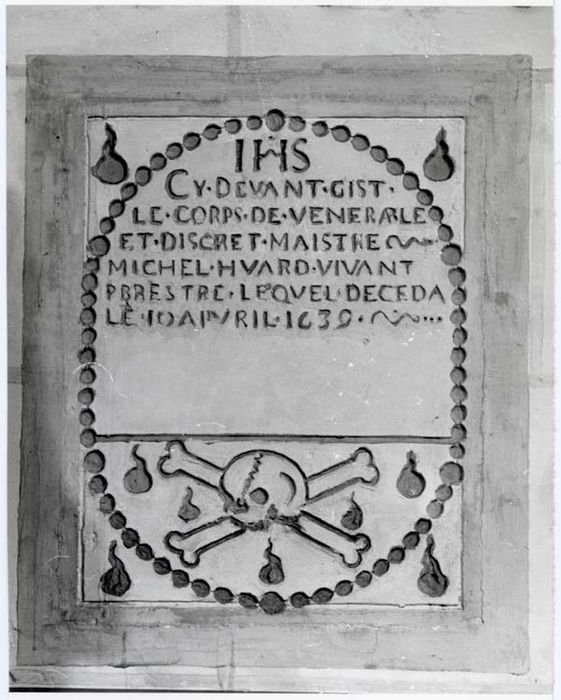 IHS
CY·DEVANT·GIST·
LE·CORPS·DE·VENERABLE
ET·DISCRET·MAISTRE
MICHEL·HVARD·VIVANT
PBRESTRE·LEQVEL·DECEDA
LE·10APVRIL·1639·